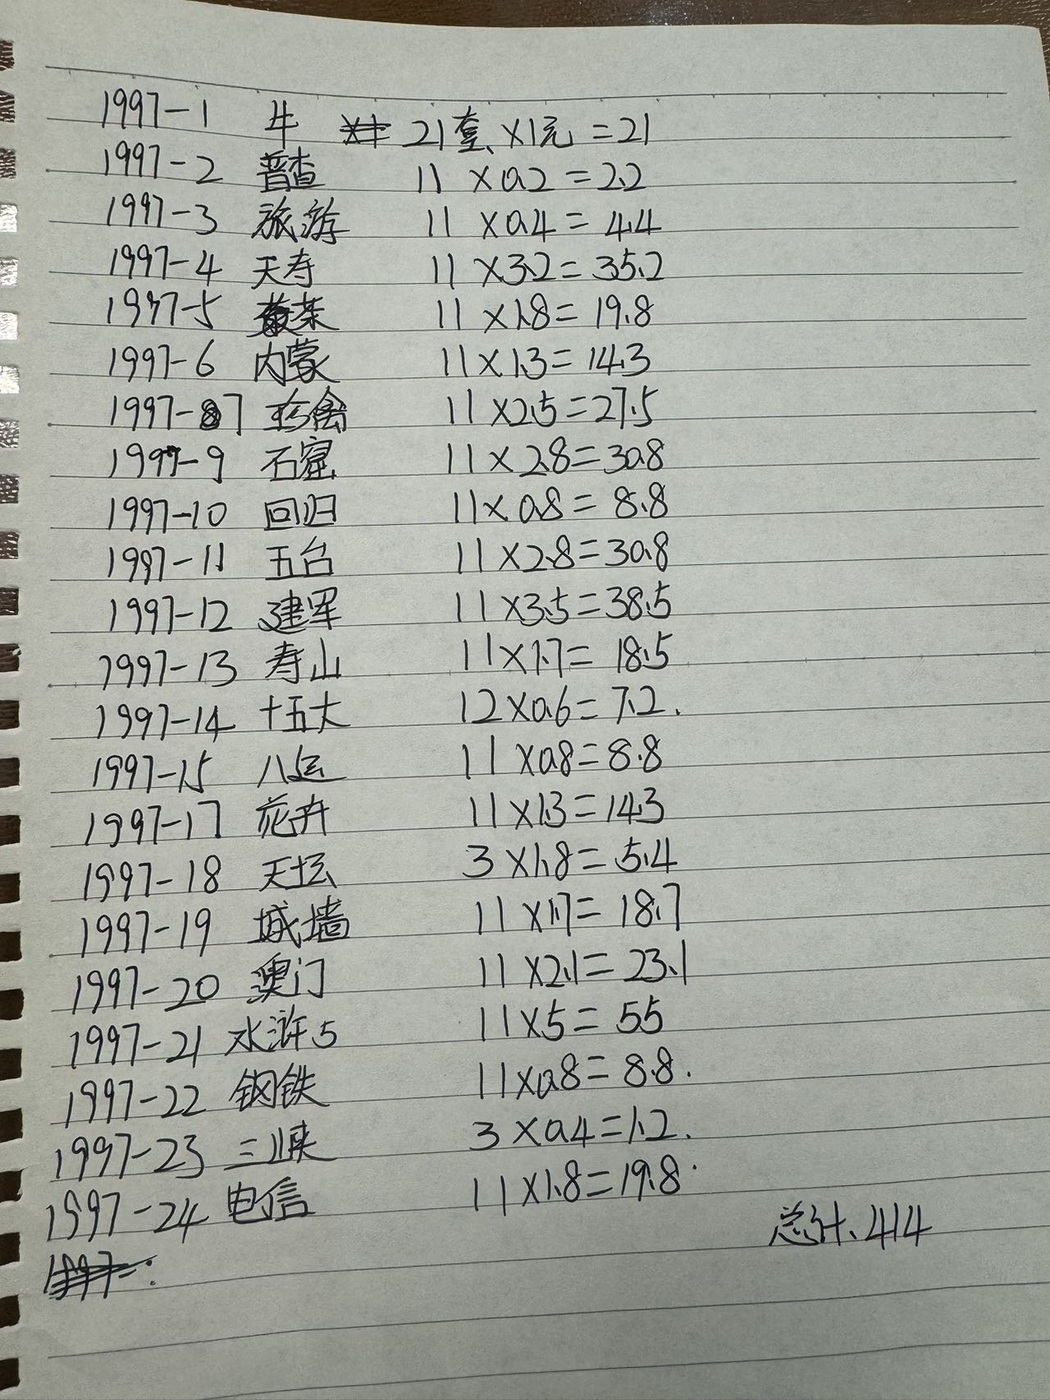 1997-1 牛 21套×1元=21
1997-2 普查 11×0.2=2.2
1997-3 旅游 11×0.4=4.4
1997-4 天寿 11×3.2=35.2
1997-5 茶 11×1.8=19.8
1997-6 内蒙 11×1.3=14.3
1997-7 珍禽 11×2.5=27.5
1997-9 石窟 11×2.8=30.8
1997-10 回归 11×0.8=8.8
1997-11 五台 11×2.8=30.8
1997-12 建军 11×3.5=38.5
1997-13 寿山 11×1.7=18.5
1997-14 十五大 12×0.6=7.2.
1997-15 八运 11×0.8=8.8
1997-17 花卉 11×1.3=14.3
1997-18 天坛 3×1.8=5.4
1997-19 城墙 11×1.7=18.7
1997-20 澳门 11×2.1=23.1
1997-21 水浒5 11×5=55
1997-22 钢铁 11×0.8=8.8.
1997-23 三峡 3×0.4=1.2.
1997-24 电信 11×1.8=19.8.
总计、414